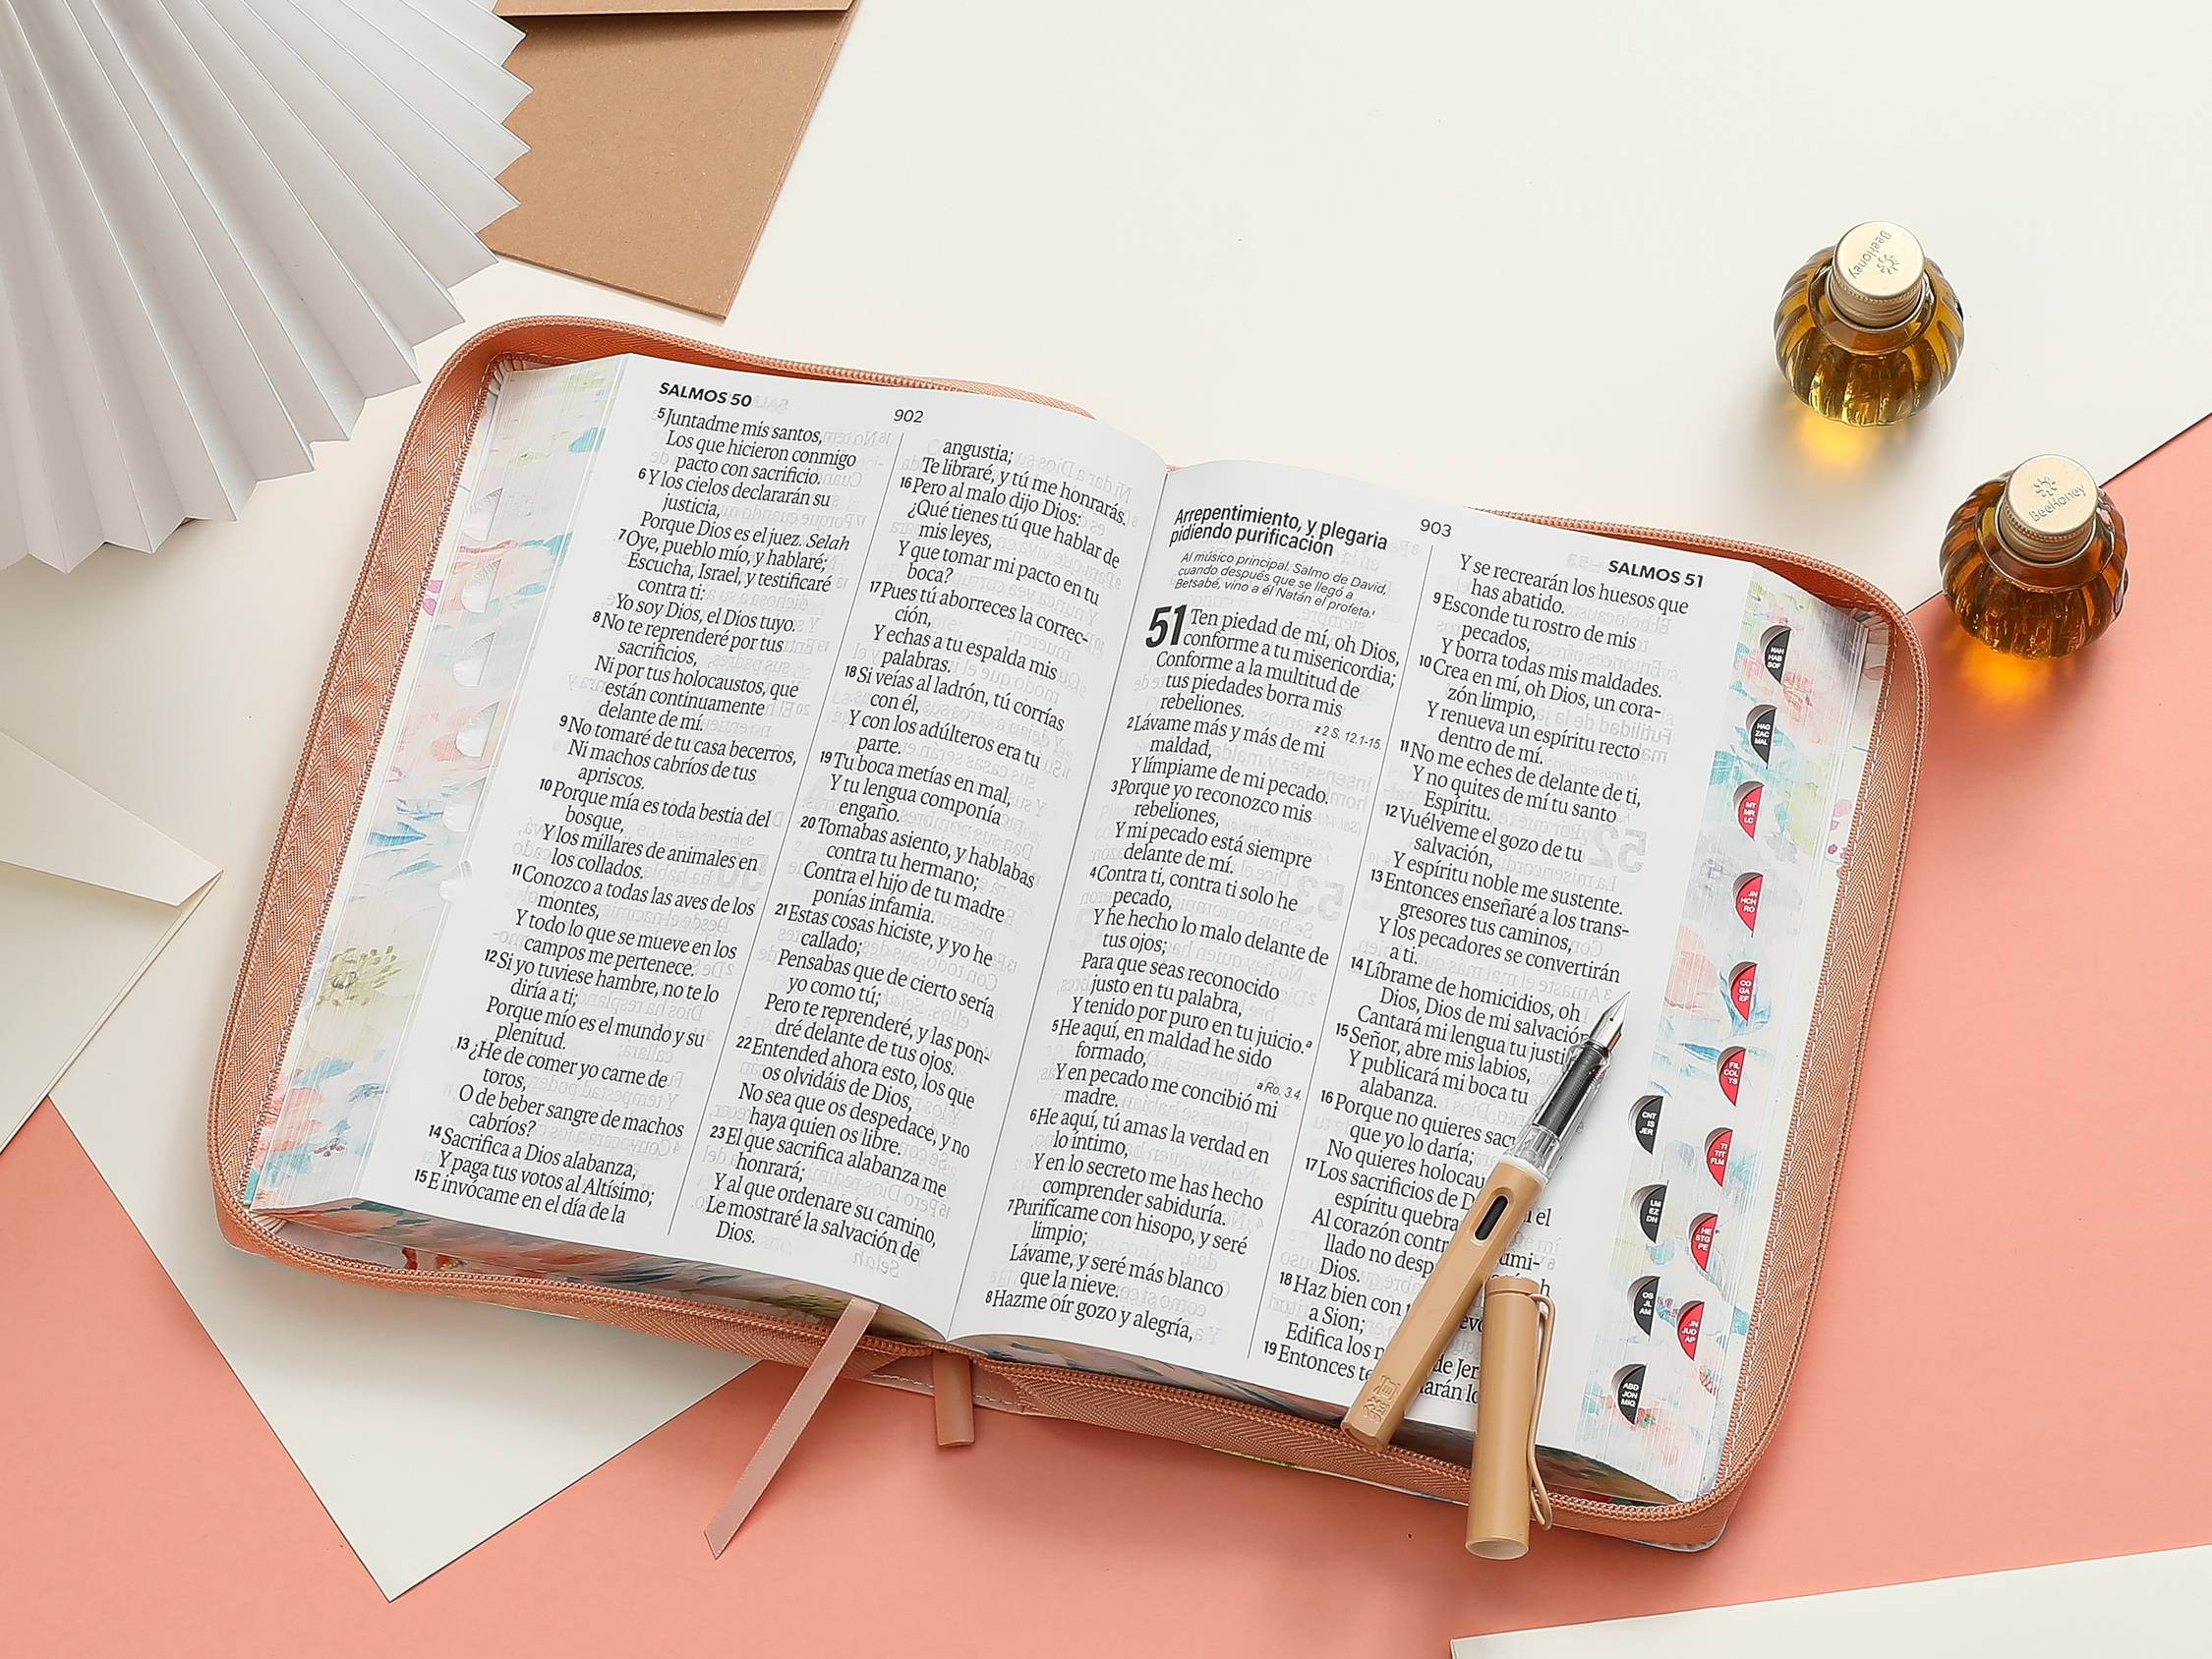 SALMOS 50
902
5 Juntadme mis santos,
Los que hicieron conmigo
pacto con sacrificio.
6 Y los cielos declararán su
justicia,
Porque Dios es el juez. Selah
7 Oye, pueblo mío, y hablaré;
Escucha, Israel, y testificaré
contra ti:
Yo soy Dios, el Dios tuyo.
8 No te reprenderé por tus
sacrificios,
Ni por tus holocaustos, que
están continuamente
delante de mí.
9 No tomaré de tu casa becerros,
Ni machos cabríos de tus
apriscos.
10 Porque mía es toda bestia del
bosque,
Y los millares de animales en
los collados.
11 Conozco a todas las aves de los
montes,
Y todo lo que se mueve en los
campos me pertenece.
12 Si yo tuviese hambre, no te lo
diría a ti;
Porque mío es el mundo y su
plenitud.
13 ¿He de comer yo carne de
toros,
O de beber sangre de machos
cabríos?
14 Sacrifica a Dios alabanza,
Y paga tus votos al Altísimo;
15 E invócame en el día de la
angustia;
Te libraré, y tú me honrarás.
16 Pero al malo dijo Dios:
¿Qué tienes tú que hablar de
mis leyes,
Y que tomar mi pacto en tu
boca?
17 Pues tú aborreces la correc-
ción,
Y echas a tu espalda mis
palabras.
18 Si veías al ladrón, tú corrías
con él,
Y con los adúlteros era tu
parte.
19 Tu boca metías en mal,
Y tu lengua componía
engaño.
20 Tomabas asiento, y hablabas
contra tu hermano;
Contra el hijo de tu madre
ponías infamia.
21 Estas cosas hiciste, y yo he
callado;
Pensabas que de cierto sería
yo como tú;
Pero te reprenderé, y las pon-
dré delante de tus ojos.
22 Entended ahora esto, los que
os olvidáis de Dios,
No sea que os despedace, y no
haya quien os libre.
23 El que sacrifica alabanza me
honrará;
Y al que ordenare su camino,
Le mostraré la salvación de
Dios.
903
SALMOS 51
Arrepentimiento, y plegaria
pidiendo purificación
Al músico principal. Salmo de David,
cuando después que se llegó a
Betsabé, vino a él Natán el profeta.z
51 Ten piedad de mí, oh Dios,
conforme a tu misericordia;
Conforme a la multitud de
tus piedades borra mis
rebeliones.
z 2 S. 12.1-15.
2 Lávame más y más de mi
maldad,
Y límpiame de mi pecado.
3 Porque yo reconozco mis
rebeliones,
Y mi pecado está siempre
delante de mí.
4 Contra ti, contra ti solo he
pecado,
Y he hecho lo malo delante de
tus ojos;
Para que seas reconocido
justo en tu palabra,
Y tenido por puro en tu juicio.a
5 He aquí, en maldad he sido
formado,
a Ro. 3.4.
Y en pecado me concibió mi
madre.
6 He aquí, tú amas la verdad en
lo íntimo,
Y en lo secreto me has hecho
comprender sabiduría.
7 Purifícame con hisopo, y seré
limpio;
Lávame, y seré más blanco
que la nieve.
8 Hazme oír gozo y alegría,
Y se recrearán los huesos que
has abatido.
9 Esconde tu rostro de mis
pecados,
Y borra todas mis maldades.
10 Crea en mí, oh Dios, un cora-
zón limpio,
Y renueva un espíritu recto
dentro de mí.
11 No me eches de delante de ti,
Y no quites de mí tu santo
Espíritu.
12 Vuélveme el gozo de tu
salvación,
Y espíritu noble me sustente.
13 Entonces enseñaré a los trans-
gresores tus caminos,
Y los pecadores se convertirán
a ti.
14 Líbrame de homicidios, oh
Dios, Dios de mi salvación
Cantará mi lengua tu
15 Señor, abre mis labios,
Y publicará mi boca tu
alabanza.
16 Porque no quieres
que yo lo daría;
No quieres
17 Los sacrificios de
espíritu el
Al corazón
llado no
Dios.
18 Haz bien con
a Sion;
Edifica los de
19 Entonces
NAH HAB SOF
HAG ZAC MAL
MT MR LC
JN HCH RO
CO GA EF
FIL COL TS
TI TIT FLM
HE STG PE
JN JUD AP
CNT IS JER
LM EZ DN
OS JL AM
ABD JON MIQ
BeeHoney
BeeHoney